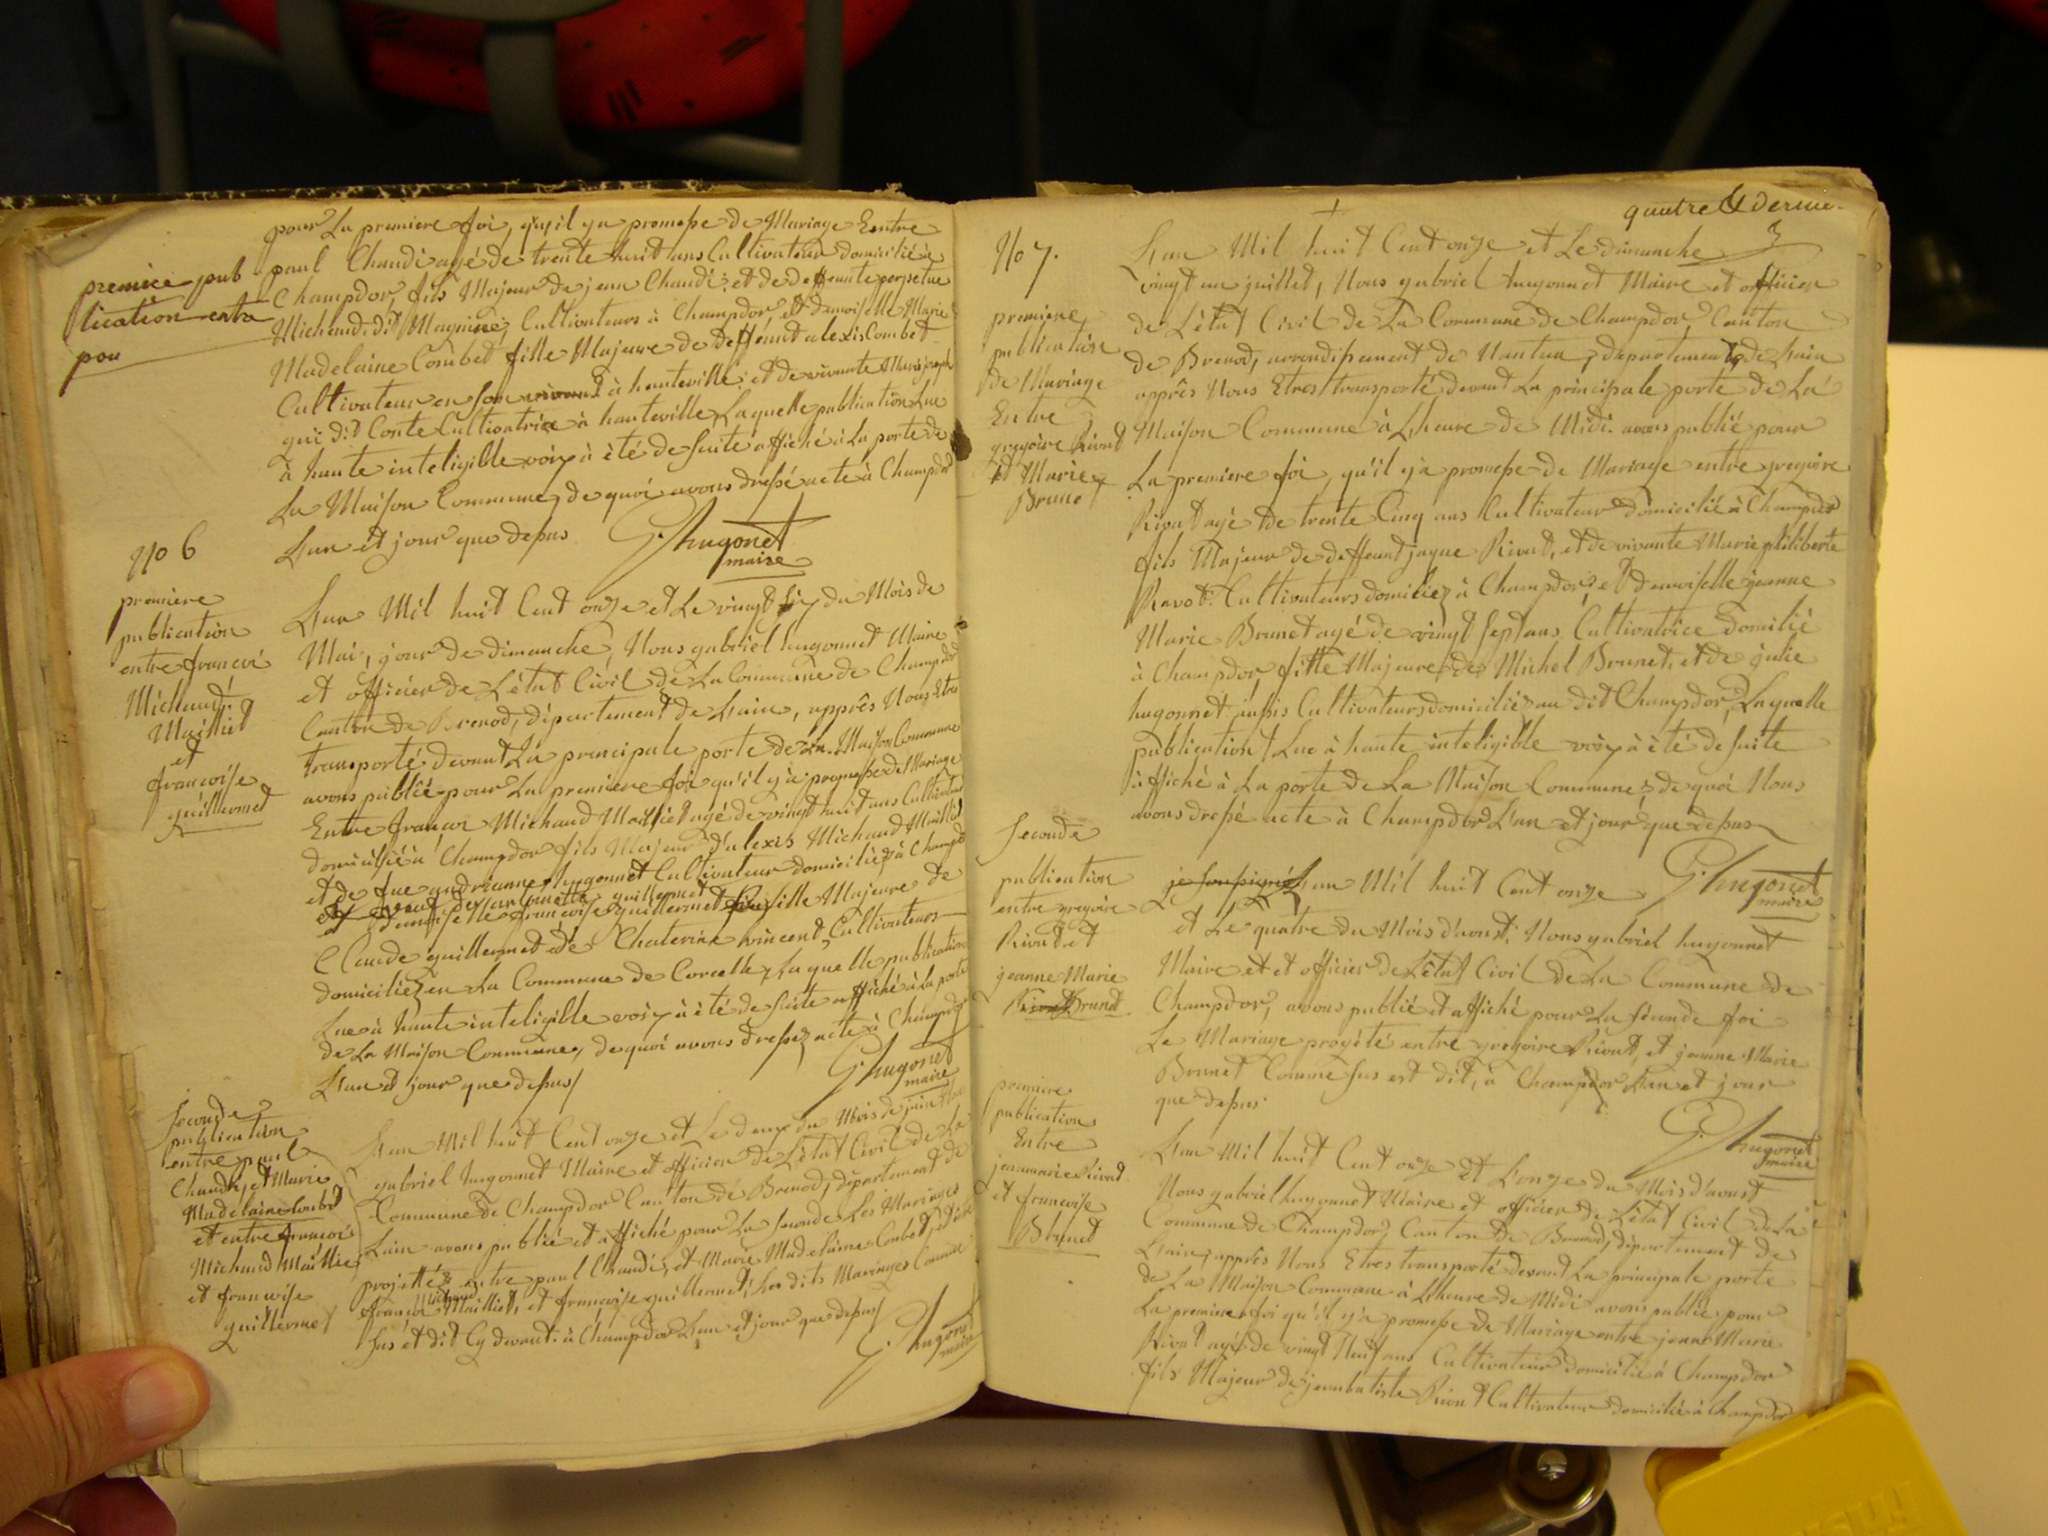 pour La premiere foi, qu'il ya promesse de Mariage Entre
premiere pub
lication entre
paul Chaudi agé de trente huit ans Cultivateur domicilié à
Champdor, fils Majeur de jean Chaudi et de deffeunte perpetue
Michaud dit Cultivateurs à Champdor et demoiselle Marie
Madelaine Combet fille Majeure de deffeunt alexis Combet
Cultivateur en son vivant à hauteville, et de vivante Marie joseph
qui dit Conte Cultivatrice à hauteville, Laquelle publication Lue
à haute inteligible voix à été de suite affiché à La porte de
La Maison Commune, de quoi avons dressé acte à Champdor
L'an et jour que dessus
G. hugonet
maire
No 6
premiere
publication
entre francoi
Michaud
Maillet
et
francoise
guillermet
L'an Mil huit Cent onze et Le vingt six du Mois de
Mai, jour de dimanche, Nous gabriel hugonnet Maire
et officier de L'état Civil de La Commune de Champdor
Canton de Brenod, département de L'ain, apprês Nous Etre
transporté devant La principale porte de La Maison Commune
avons publié pour La premiere foi qu'il y à promesse de Mariage
Entre francoi Michaud Maillet agé de vingt huit ans Cultivateur
domicilié à Champdor fils Majeur d'alexis Michaud Maillet
et de feue andrianne hugonnet Cultivateur domiciliéz à Champdor
et demoiselle francoise guillermet fille Majeure de
Claude guillermet et de Chaterine vincent, Cultivateurs
domiciliéz en La Commune de Corcelle, Laquelle publication
Lue à haute inteligible voix à été de suite affiché à La porte
de La Maison Commune, de quoi avons dressez acte à Champdor
L'an et jour que dessus
G. hugonet
maire
seconde
publication
entre paul
Chaudi, et Marie
Madelaine Combet
et entre francoi
Michaud Maillet
et francoise
guillermet
L'an Mil huit Cent onze et Le deux du Mois de juin Nous
gabriel hugonnet Maire et officier de L'état Civil de La
Commune de Champdor Canton de Brenod, département de
L'ain avons publié et affiché pour La seconde Les Mariages
projettéz entre paul Chaudi, et Marie Madelaine Combet
francoi Michaud Maillet, et francoise guillermet, Les dits Mariages Comme
sus et dit Cy devant. à Champdor L'an et jour que dessus
G. hugonet
maire
quatre & dernie.
No 7.
premiere
publication
de Mariage
Entre
gregoire Rivat
et Marie
Brunet
L'an Mil huit Cent onze et Le dimanche
vingt un juillet, Nous gabriel hugonnet Maire et officier
de L'état Civil de La Commune de Champdor Canton
de Brenod, arrondissement de Nantua, departement de L'ain
apprês Nous Etres transporté devant La principale porte de La
Maison Commune à L'heure de Midi avons publié pour
La premiere foi, qu'il y à promesse de Mariage entre gregoire
Rivat agé de trente Cinq ans Cultivateur domicilié à Champdor
fils Majeur de deffeunt jaque Rivat, et de vivante Marie philiberte
Ravot Cultivateurs domiciliez à Champdor, et demoiselle jeanne
Marie Brunet agé de vingt sept ans Cultivatrice domilié
à Champdor fille Majeure de Michel Brunet, et de julie
hugonnet aussi Cultivateurs domiciliéz au dit Champdor, Laquelle
publication Lue à haute inteligible voix à été de suite
affiché à La porte de La Maison Commune, de quoi Nous
avons dressé acte à Champdor L'an et jour que dessus
G. hugonet
maire
seconde
publication
entre gregoire
Rivat et
jeanne Marie
Rivat Brunet
je soussigné L'an Mil huit Cent onze
et Le quatre du Mois d'aoust, Nous gabriel hugonnet
Maire et et officier de L'état Civil de La Commune de
Champdor, avons publié et affiché pour La séconde foi
Le Mariage projété entre gregoire Rivat, et jeanne Marie
Brunet Comme sus est dit, à Champdor L'an et jour
que dessus.
G. hugonet
maire
premiere
publication
Entre
jeanmarie Rivat
et francoise
Brunet
L'an Mil huit Cent onze et L'onze du Mois d'aoust
Nous gabriel hugonnet Maire et officier de L'état Civil de La
Commune de Champdor, Canton de Brenod, département de
L'ain, apprês Nous Etres transporté devant La principale porte
de La Maison Commune à L'heure de Midi avons publié pour
La premiere foi qu'il y à promesse de Mariage entre jean Marie
Rivat agé de vingt Neuf ans Cultivateur domicilié à Champdor
fils Majeur de jeanbatiste Rivat Cultivateur domicilié à Champdor